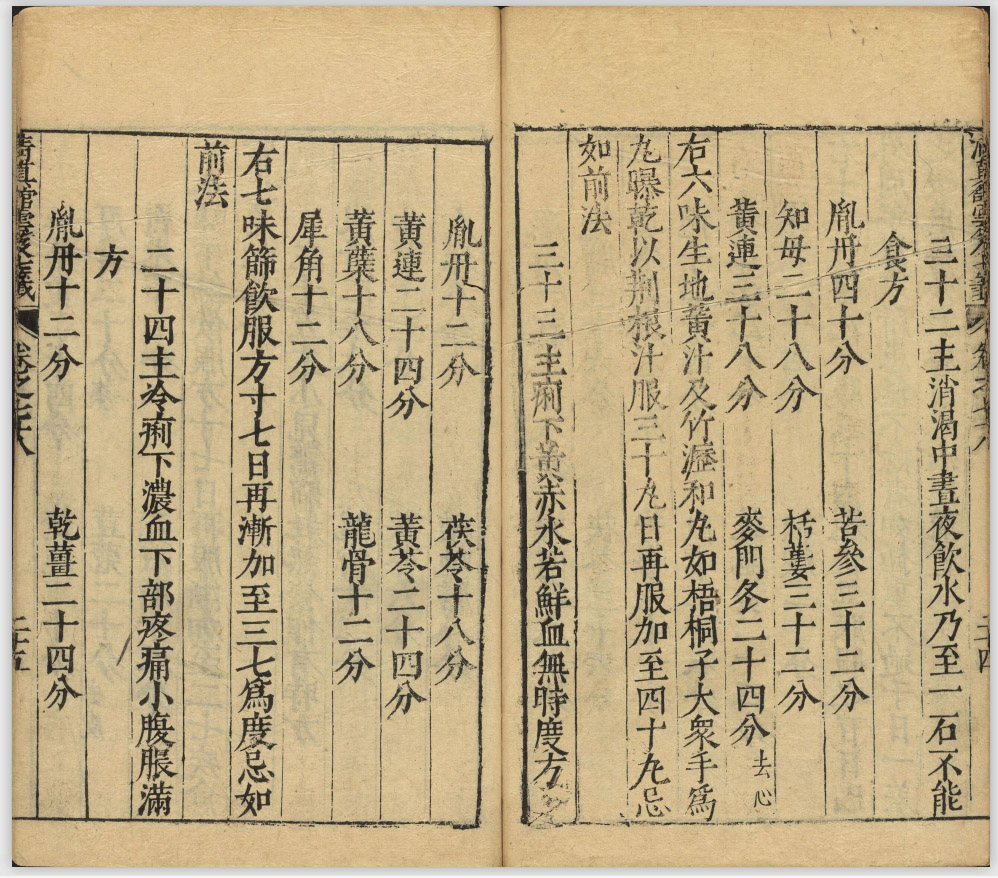 三十二主消渴中晝夜飲水乃至一石不能
食方
胤丹四十分 苦參三十二分
知母二十八分 栝蔞三十二分
黃連三十八分 麥門冬二十四分去心
右六味生地黃汁及竹瀝和丸如梧桐子大衆手爲
丸曝乾以荆根汁服三十丸日再服加至四十丸忌
如前法
三十三主痢下黃赤水若鮮血無時度方
胤丹十二分 茯苓十八分
黃連二十四分 黃芩二十四分
黃葉十八分 龍骨十二分
犀角十二分
右七味篩飲服方寸七日再漸加至三七爲度忌如
前法
二十四主冷痢下濃血下部疼痛小腹脹滿
方
胤丹十二分 乾薑二十四分